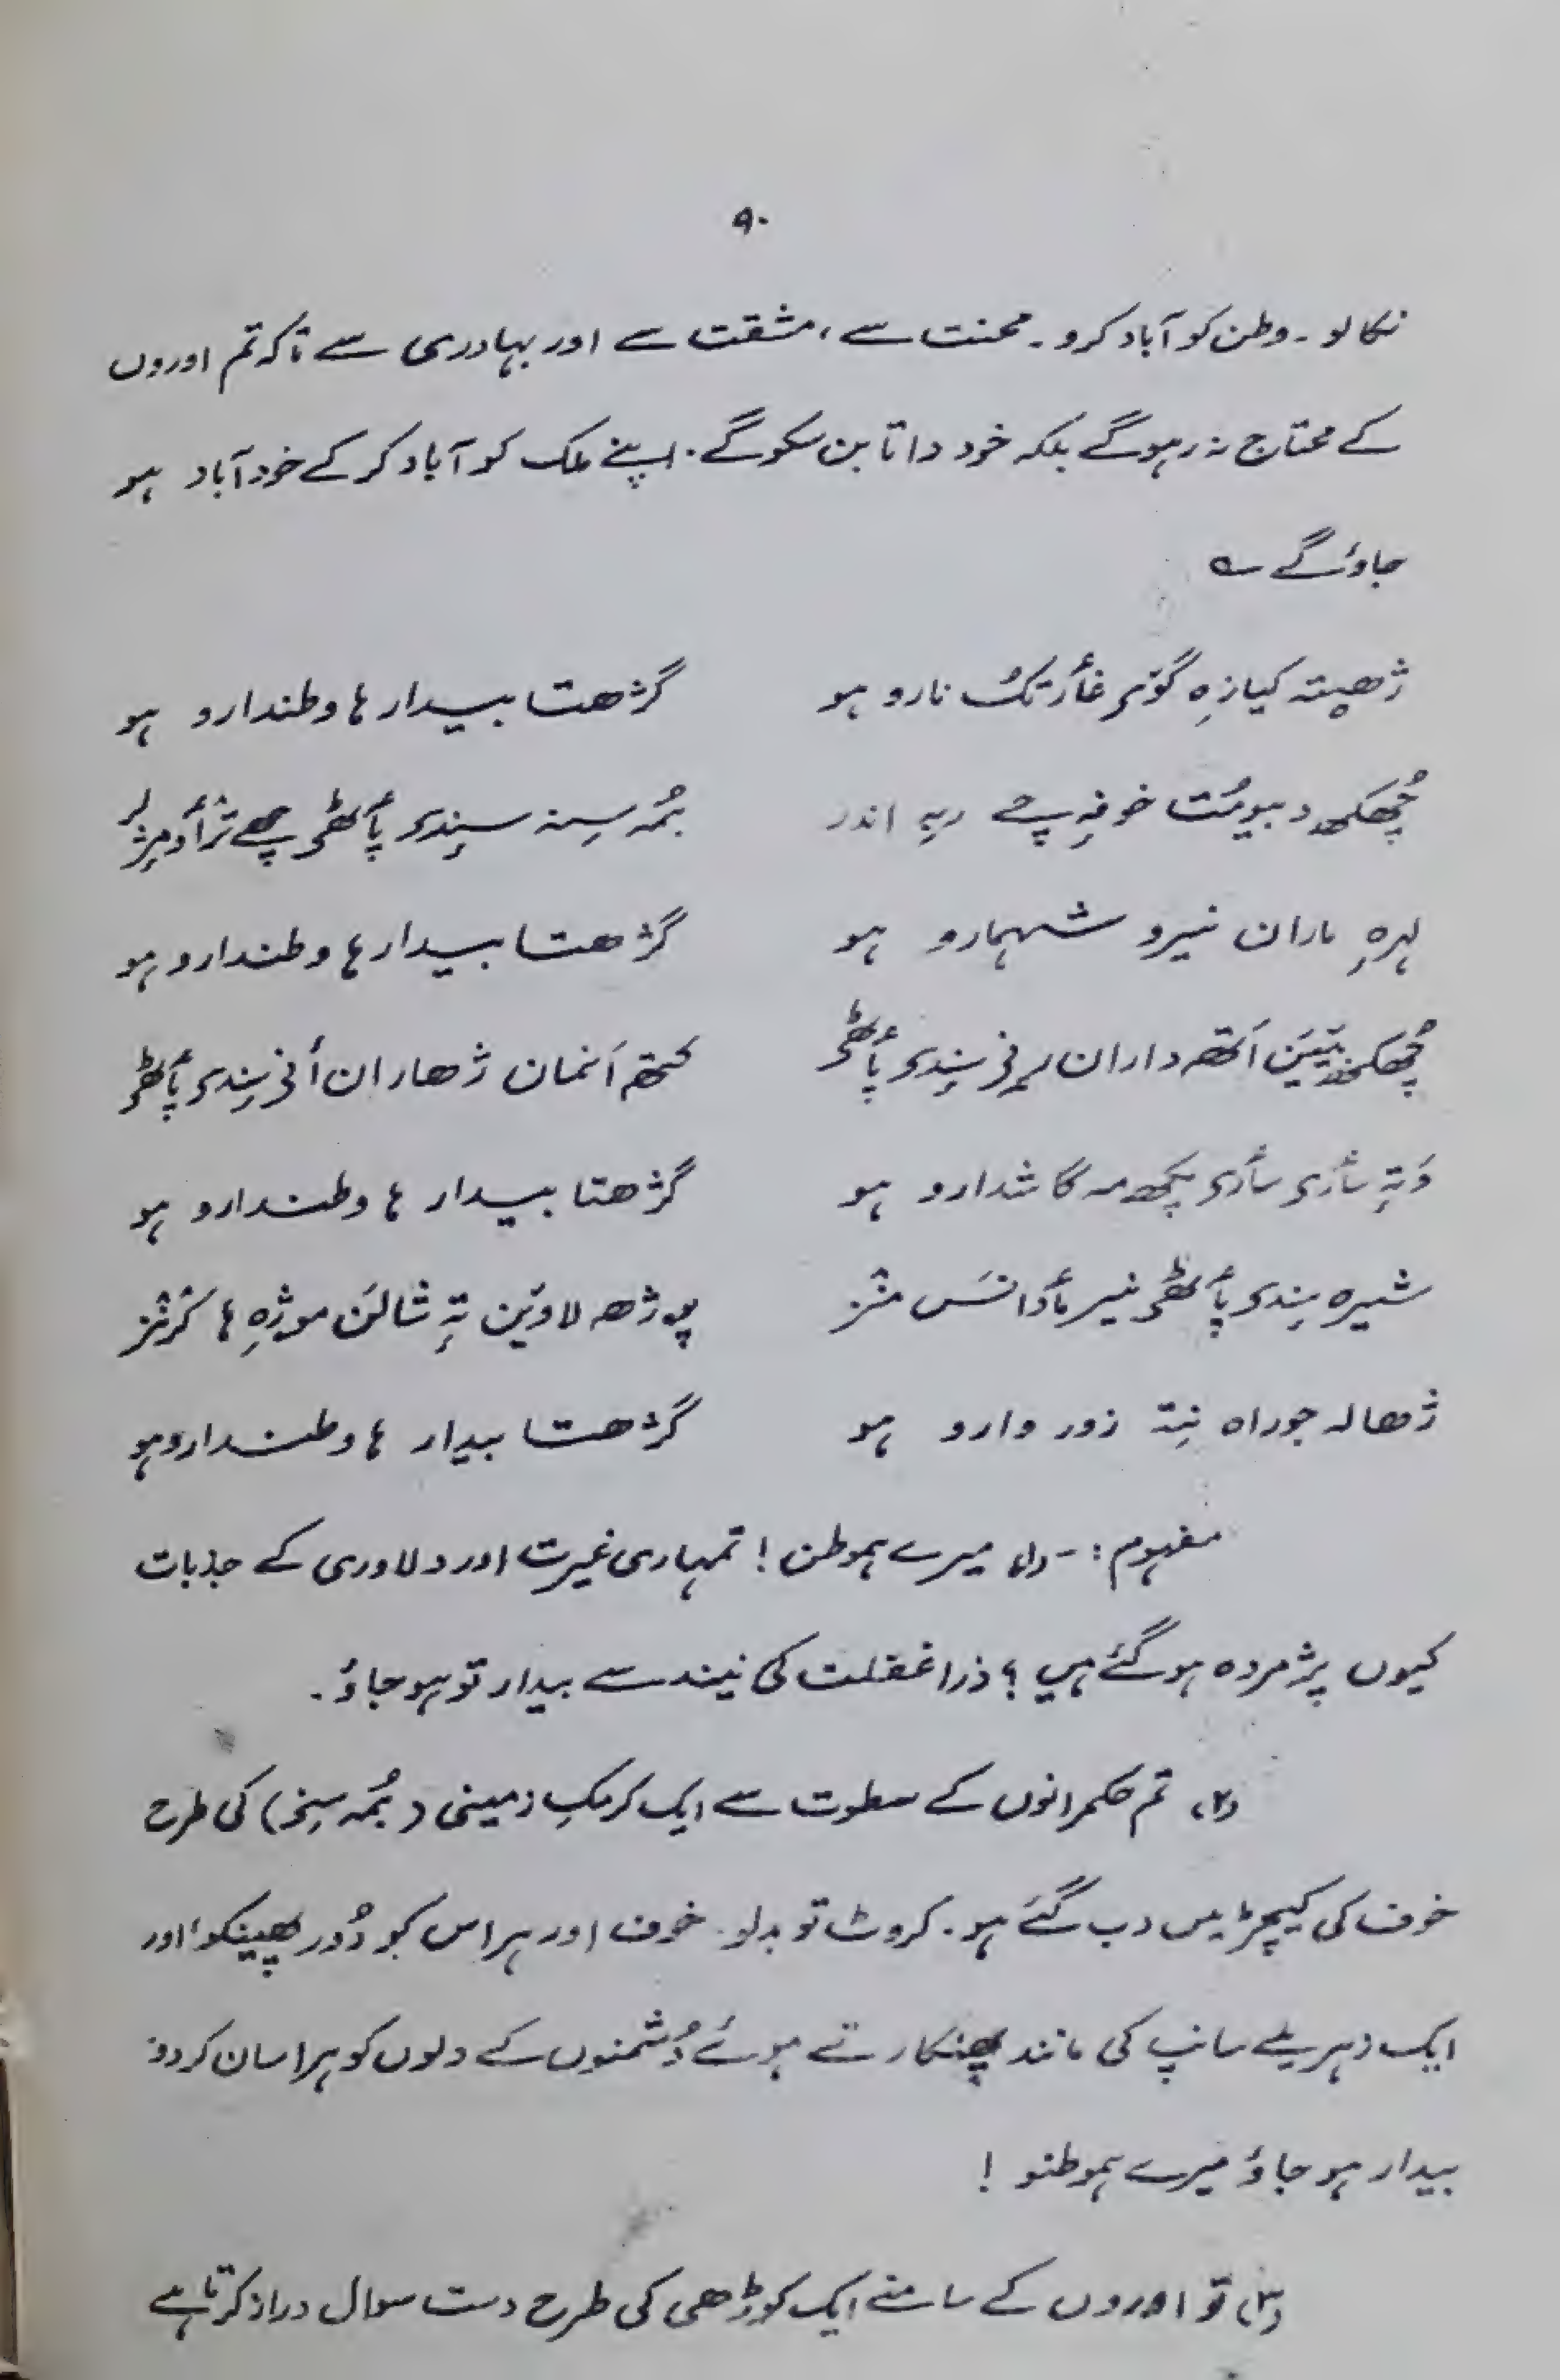 ۹۰
نکالو۔ وطن کو آباد کرو۔ محنت سے، مشقت سے اور بہادری سے تاکہ تم اوروں
کے محتاج نہ رہوگے بلکہ خود داتا بن سکو گے۔ اپنے ملک کو آباد کر کے خود آباد ہو
جاؤ گے ؎
ژھیتہٕ کیازِہ گوٚی غأرتکُ نارو ہو گژھتا بیدار ہا وطندارو ہو
چُھکھ دبیومُت خوفہِ چے رپہِ اندر بُمہٕ سِنہٕ سِندی پأٹھی چھے
لہرہِ ماران نیرو شہمارو ہو گژھتا بیدار ہا وطندارو ہو
چُھکھ بَیَین اَتھ داران سِندی پأٹھی کتھ اَنمان ژھاران أنی سِندی پأٹھی
وَتہِ سأری سأری پکھ مہ گاشدارو ہو گژھتا بیدار ہا وطندارو ہو
شیرہ سِندی پأٹھی نیر مأدانَس منٛز پوژھ لاویَن تہِ شالَن موژہِ ہا کرنٛز
ژھالہ جوراہ نِتہ زور وارو ہو گژھتا بیدار ہا وطندارو ہو
مفہوم:۔ (۱) میرے ہموطن! تمہاری غیرت اور دلاوری کے جذبات
کیوں پژمردہ ہو گئے ہیں؟ ذرا غفلت کی نیند سے بیدار تو ہو جاؤ۔
(۲) تم حکمرانوں کے سطوت سے ایک کرمکِ زمینی (بُمہ سِنہ) کی طرح
خوف کی کیچڑ میں دب گئے ہو۔ کروٹ تو بدلو۔ خوف اور ہراس کو دُور پھینکو اور
ایک زہریلے سانپ کی مانند پھنکارتے ہوئے دُشمنوں کے دلوں کو ہراسان کردو۔
بیدار ہو جاؤ میرے ہموطنو!
(۳) تو اوروں کے سامنے ایک کوڑھی کی طرح دست سوال دراز کرتا ہے